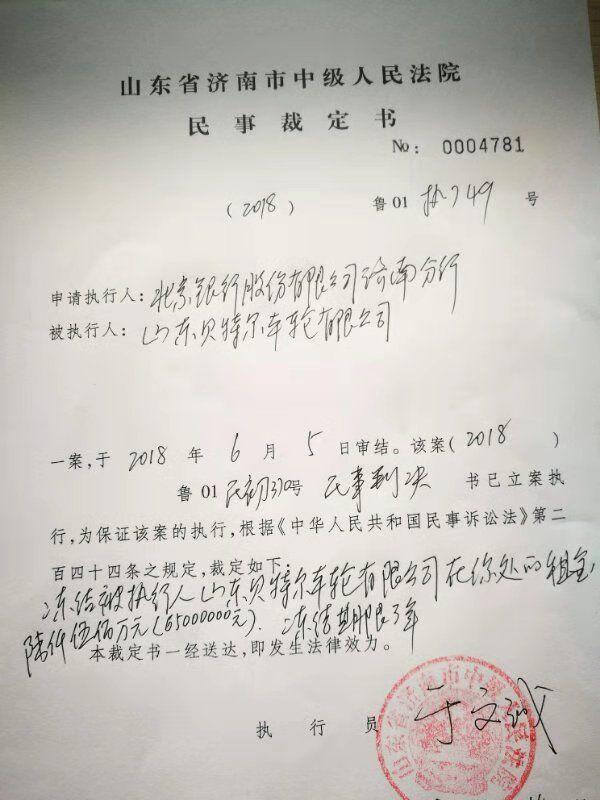 山东省济南市中级人民法院
民事裁定书
No: 0004781
(2018) 鲁01执749号
申请执行人:北京银行股份有限公司济南分行
被执行人:山东贝特尔车轮有限公司
一案,于2018年6月5日审结。该案(2018)
鲁01民初330号民事判决书已立案执
行,为保证该案的执行,根据《中华人民共和国民事诉讼法》第二
百四十四条之规定,裁定如下:
冻结被执行人山东贝特尔车轮有限公司在你处的租金
陆仟伍佰万元(65000000元).冻结期限3年
本裁定书一经送达,即发生法律效力。
执行员 于文
山东省济南市中级人民法院